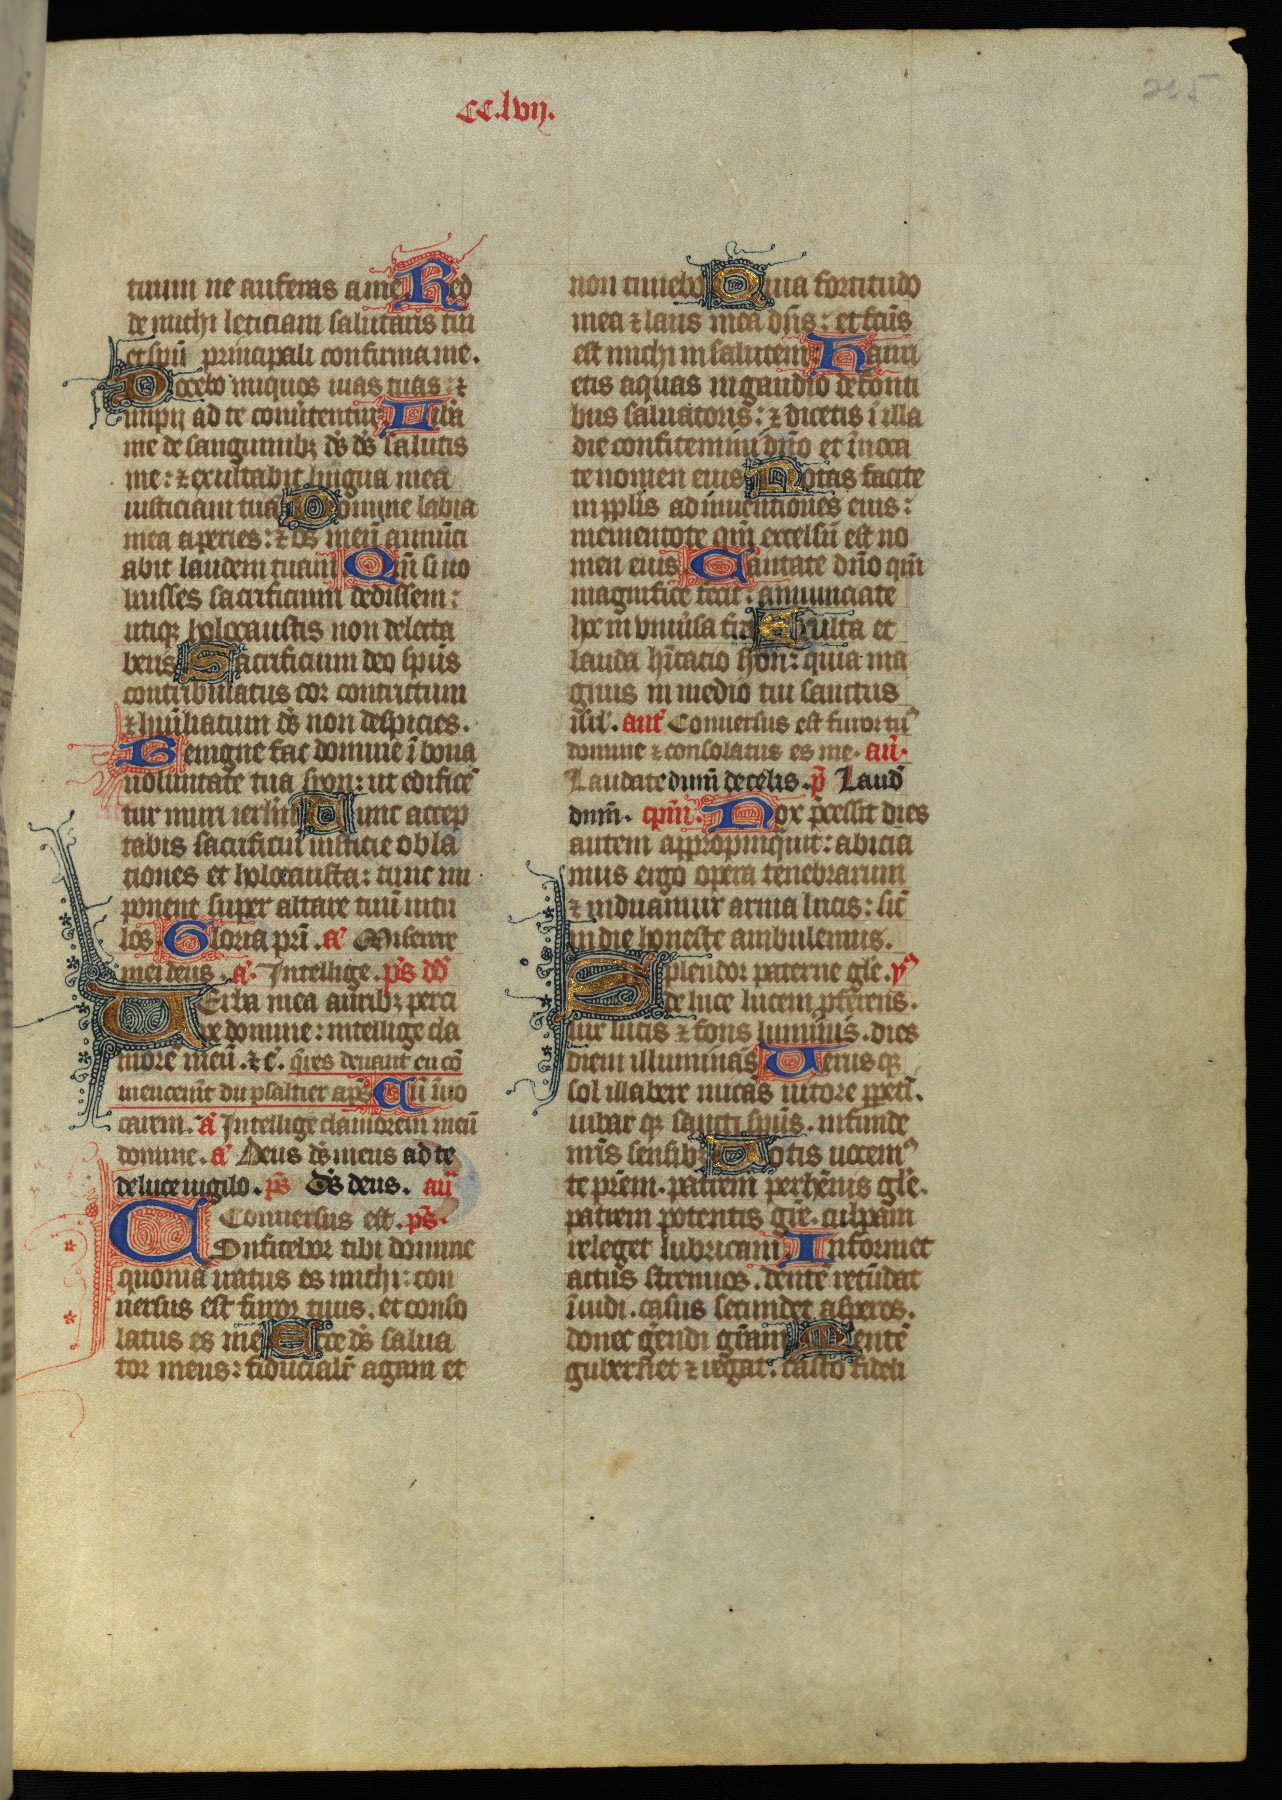 CC.lvij.
255
tuum ne auferas a me Red
de michi leticiam salutaris tui
et spū principali confirma me.
Docebo iniquos uias tuas: ⁊
impij ad te conůtentur Liba
me de sanguinibꝫ dˢ dˢ salutis
me: ⁊ exultabit lingua mea
iusticiam tuā Domine labia
mea aperies: ⁊ os meū annūci
abit laudem tuam Qm̄ si uo
luisses sacrificium dedissem:
utiqꝫ holocaustis non delecta
beris Sacrificium deo spūs
contribulatus cor contritum
⁊ humiliatum dˢ non despicies.
Benigne fac domine ī bona
uoluntate tua syon: ut edificē
tur muri ierlm̄ Tunc accep
tabis sacrificiū iusticie obla
tiones et holocausta: tunc im
ponent super altare tuū uitu
los. Gloria pr̄i. a̾ Miserere
mei deus. a̾. Intellige. pˢ dd̾
Uerba mea auribꝫ perci
pe domine: intellige cla
morē meū. ⁊c̾. q̄res deuant en cō
mencemt̄ du psaltier apˢ Cū īuo
carem. a̾ Intellige clamorem meū
domine. a̾ Deus dˢ meus ad te
de luce uigilo. pˢ Dˢ deus. aū
Conuersus est. pˢ.
Confitebor tibi domine
quoniā iratus es michi: con
uersus est furor tuus. et conso
latus es me Ecce dˢ salua
tor meus: fiducialr̄ agam et
non timebo Quia fortitudo
mea ⁊ laus mea dn̄s: et fc̄us
est michi in salutem Hauri
etis aquas in gaudio de fonti
bus saluatoris: ⁊ dicetis ī illa
die confitemini dn̄o et īuoca
te nomen eius Notas facite
in pplis adinuentiones eius:
mementote qm̄ excelsū est no
men eius Cantate dn̄o qm̄
magnifice fecit: annunciate
hoc in uniůsa tr̄a Exulta et
lauda hītatio syon: quia ma
gnus in medio tui sanctus
isrl̾. ant̾ Conuersus est furor tū
domine ⁊ consolatus es me. aū.
Laudate dnm̄ de celis. p̄ Laud̾
dnm̄. cpm̄. Nox p̄cessit dies
autem appropinquit: abicia
mus ergo opera tenebrarum
⁊ induamur arma lucis: sic̄
in die honeste ambulemus.
Splendor paterne glē. ym̾
de luce lucem pferens.
lux lucis ⁊ fons luminis. dies
diem illuminās Uerus qꝫ
sol illabere micās nitore ppeti.
iubar qꝫ sancti spūs. infunde
nr̄is sensibꝫ Uotis uocem̾
te prēm. patrem perhēnis glē.
patrem potentis grē. culpam
releget lubricam Informet
actus strenuos. dentē retūdat
īuidi. casus secundet asperos.
donet gerendi grām Mentē
gubernet ⁊ regat. casto fideli